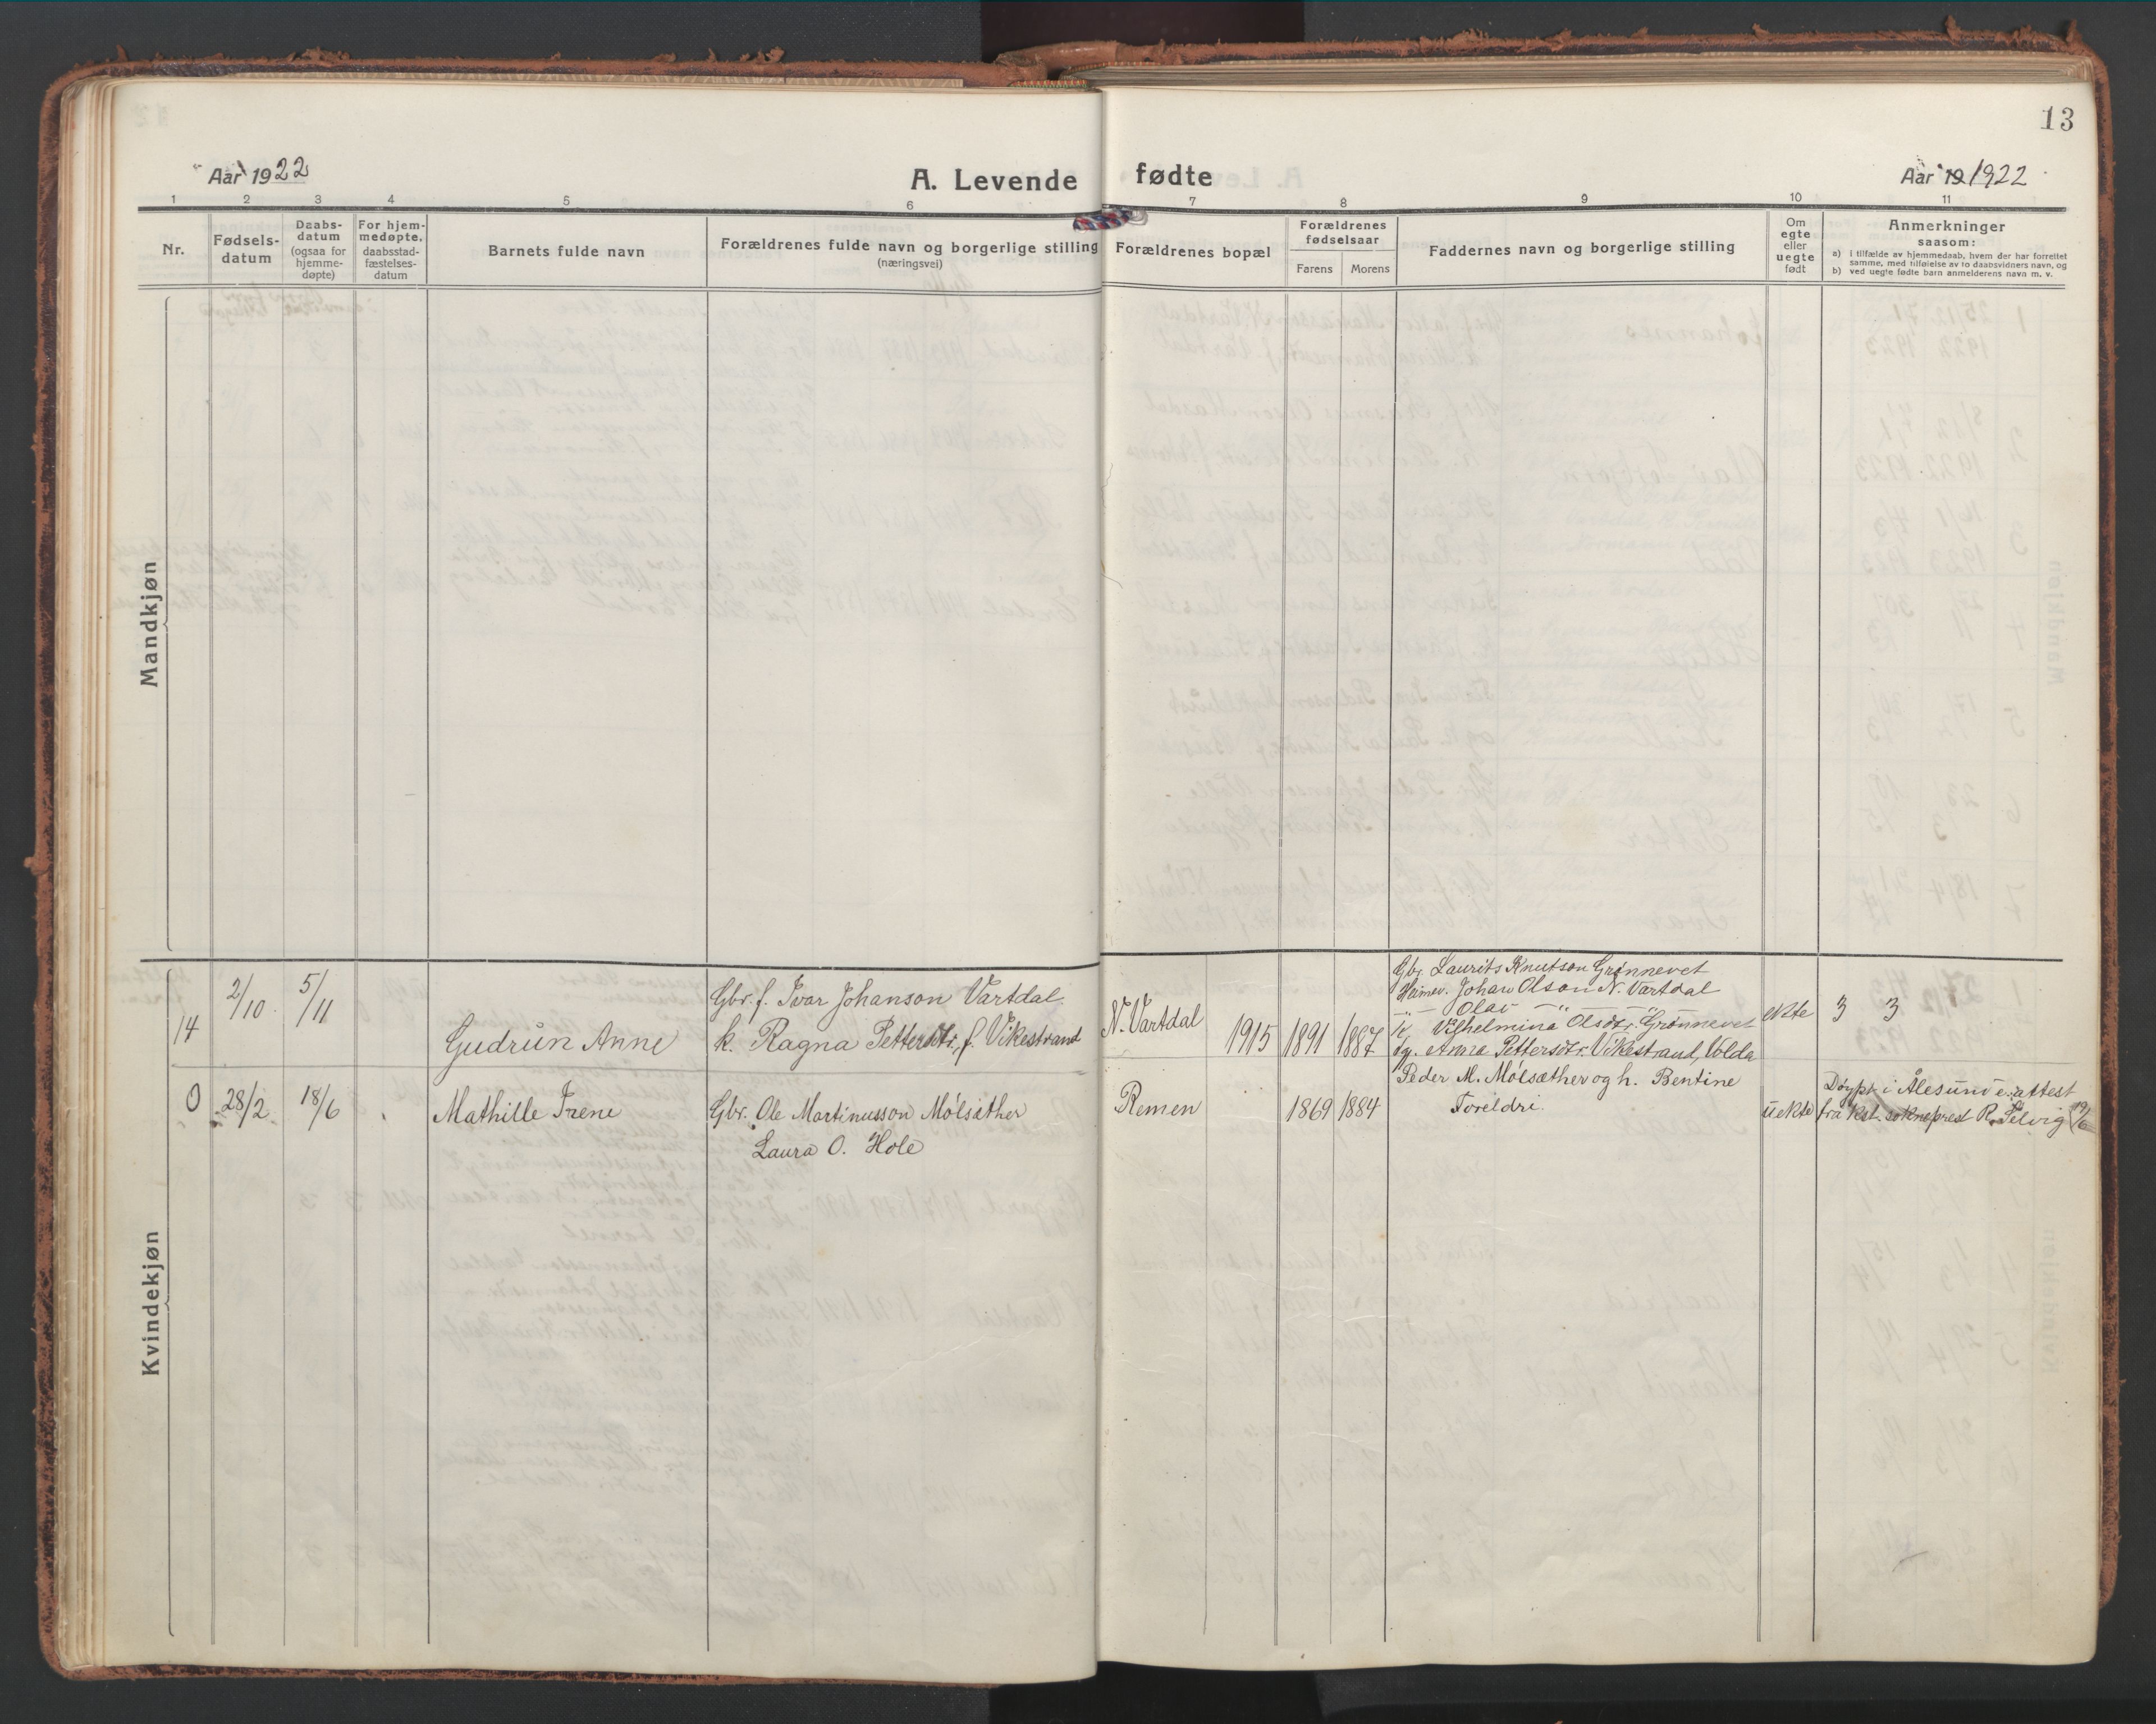 13
Aar 1922
A. Levende fødte
Aar 19 1922
1 2 3 4 5 6 7 8 9 10 11
Nr.
Fødsels-
datum
Daabs-
datum
(ogsaa for
hjemme-
døpte)
For hjem-
medøpte,
daabsstad-
fæstelses-
datum
Barnets fulde navn
Forældrenes fulde navn og borgerlige stilling
(næringsvei)
Forældrenes bopæl
Forældrenes
fødselsaar
Førens Morens
Faddernes navn og borgerlige stilling
Om
egte
eller
uegte
født
Anmerkninger
saasom:
a) i tilfælde av hjemmedaab, hvem der har forrettet
samme, med tilføielse av to daabsvidners navn, og
b) ved uegte fødte barn anmelderens navn m. v.
Mandkjøn
Kvindekjøn
14
2/10
5/11
Gudrun Anne
Gbr. f. Ivar Johanson Vartdal
k. Ragna Pettersdtr. f. Vikestrand
N. Vartdal
1915
1891
1887
Gbr. Laurits Knutson Grønnevet
Heimev. Johan Olson N. Vartdal
-"- Olai -"-
K. Vilhelmina Olsdtr. Grønnevet
Tg. Anna Pettersdtr. Vikestrand, Volda
ekte
3 3
0
28/2
18/6
Mathille Irene
Gbr. Ole Martinusson Mólsæther
Laura O. Hole
Remen
1869
1884
Peder M. Mólsæther og h. Bentine
Foreldri.
uekte
Døypt i Ålesund e. attest
frå kst. sokneprest R. Selvig 19/6